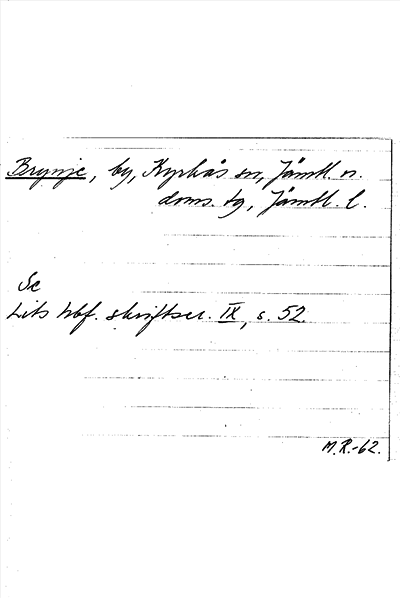 Brynje, by, Kyrkås sn, Jämtl. n.
doms. tg, Jämtl. l.
Se
Lits hbf. skriftser. IX, s. 52.
M.R.-62.